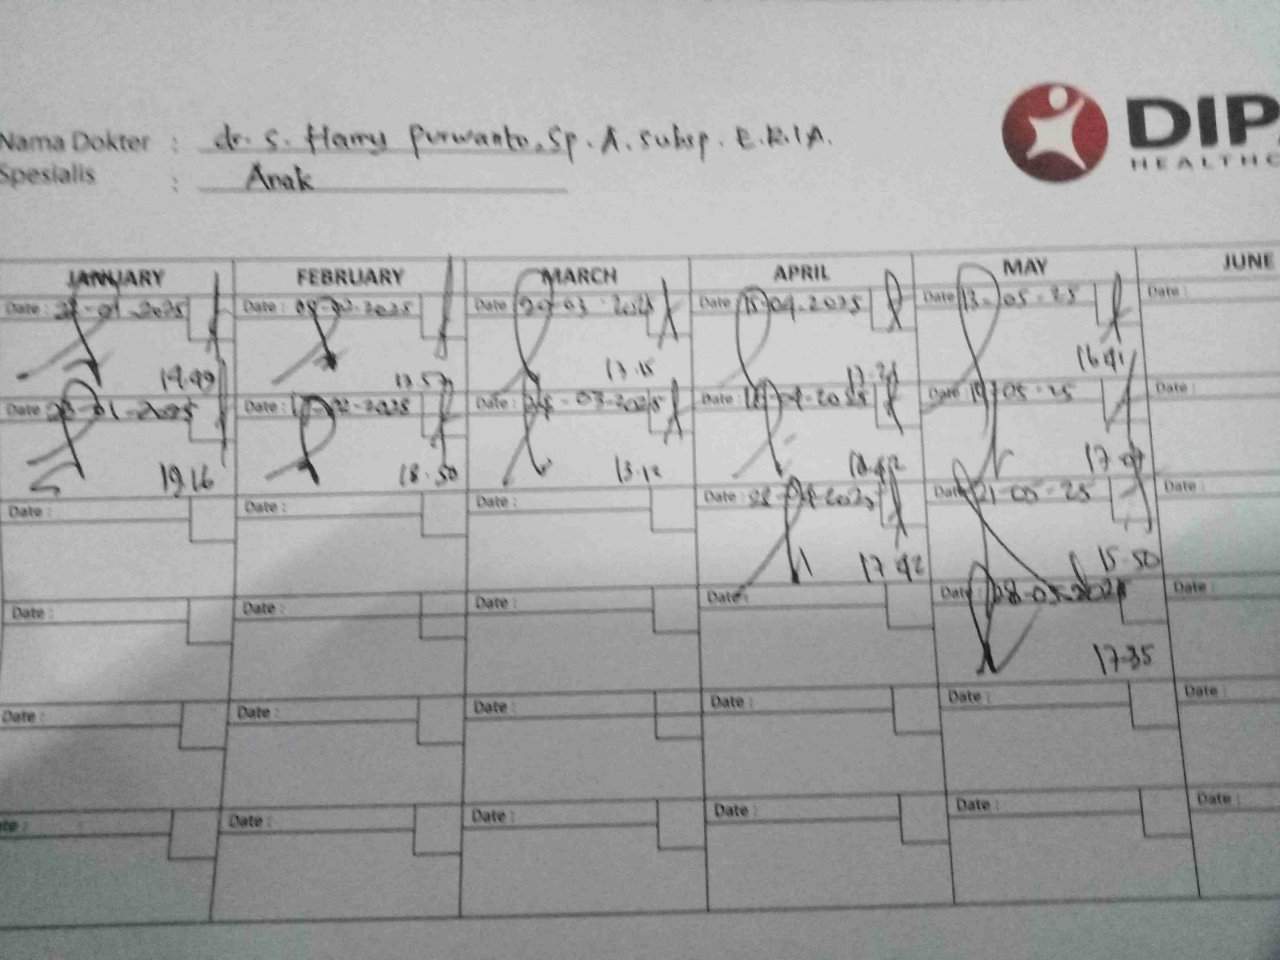 DIP
HEALTHC
Nama Dokter : dr. S. Harry Purwanto, Sp. A. Subsp. E.K.I.A.
Spesialis : Anak
JANUARY FEBRUARY MARCH APRIL MAY JUNE
Date : -01-2025 Date : 08-02-2025 Date : 20-03-2025 Date : 15-04-2025 Date 13-05-25 Date :
19.49 13.57 13.15 16.41
Date : -01-2025 Date : -02-2025 Date : -03-2025 Date : -04-2025 Date 19-05-25 Date :
19.16 18.50 13.12
Date : Date : Date : Date : 22-04-2025 Date 21-05-25 Date :
17.42 15.50
Date : Date : Date : Date : Date : 28-05-2025 Date :
17.35
Date : Date : Date : Date : Date : Date :
Date : Date : Date : Date : Date : Date :